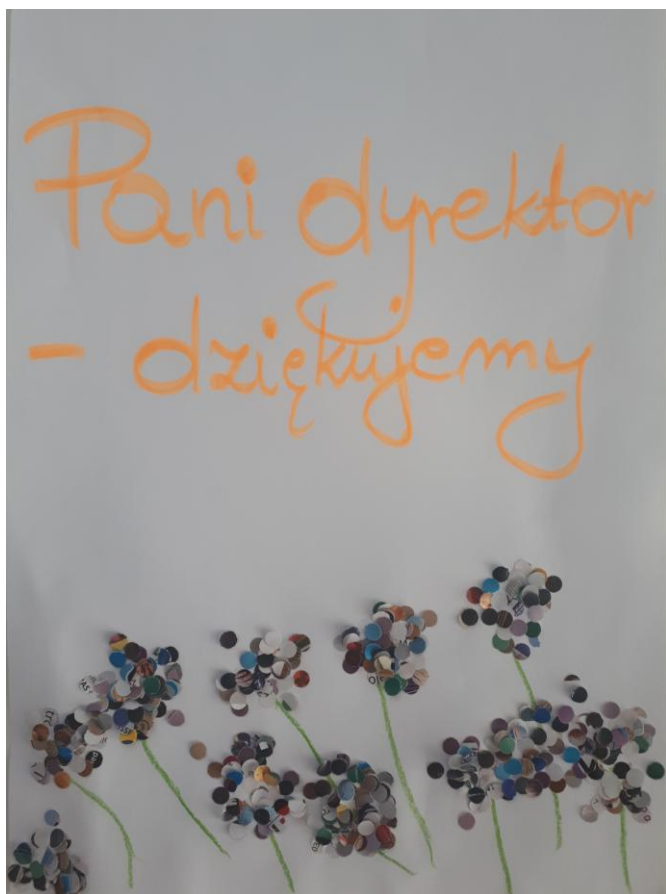 Pani dyrektor
- dziękujemy